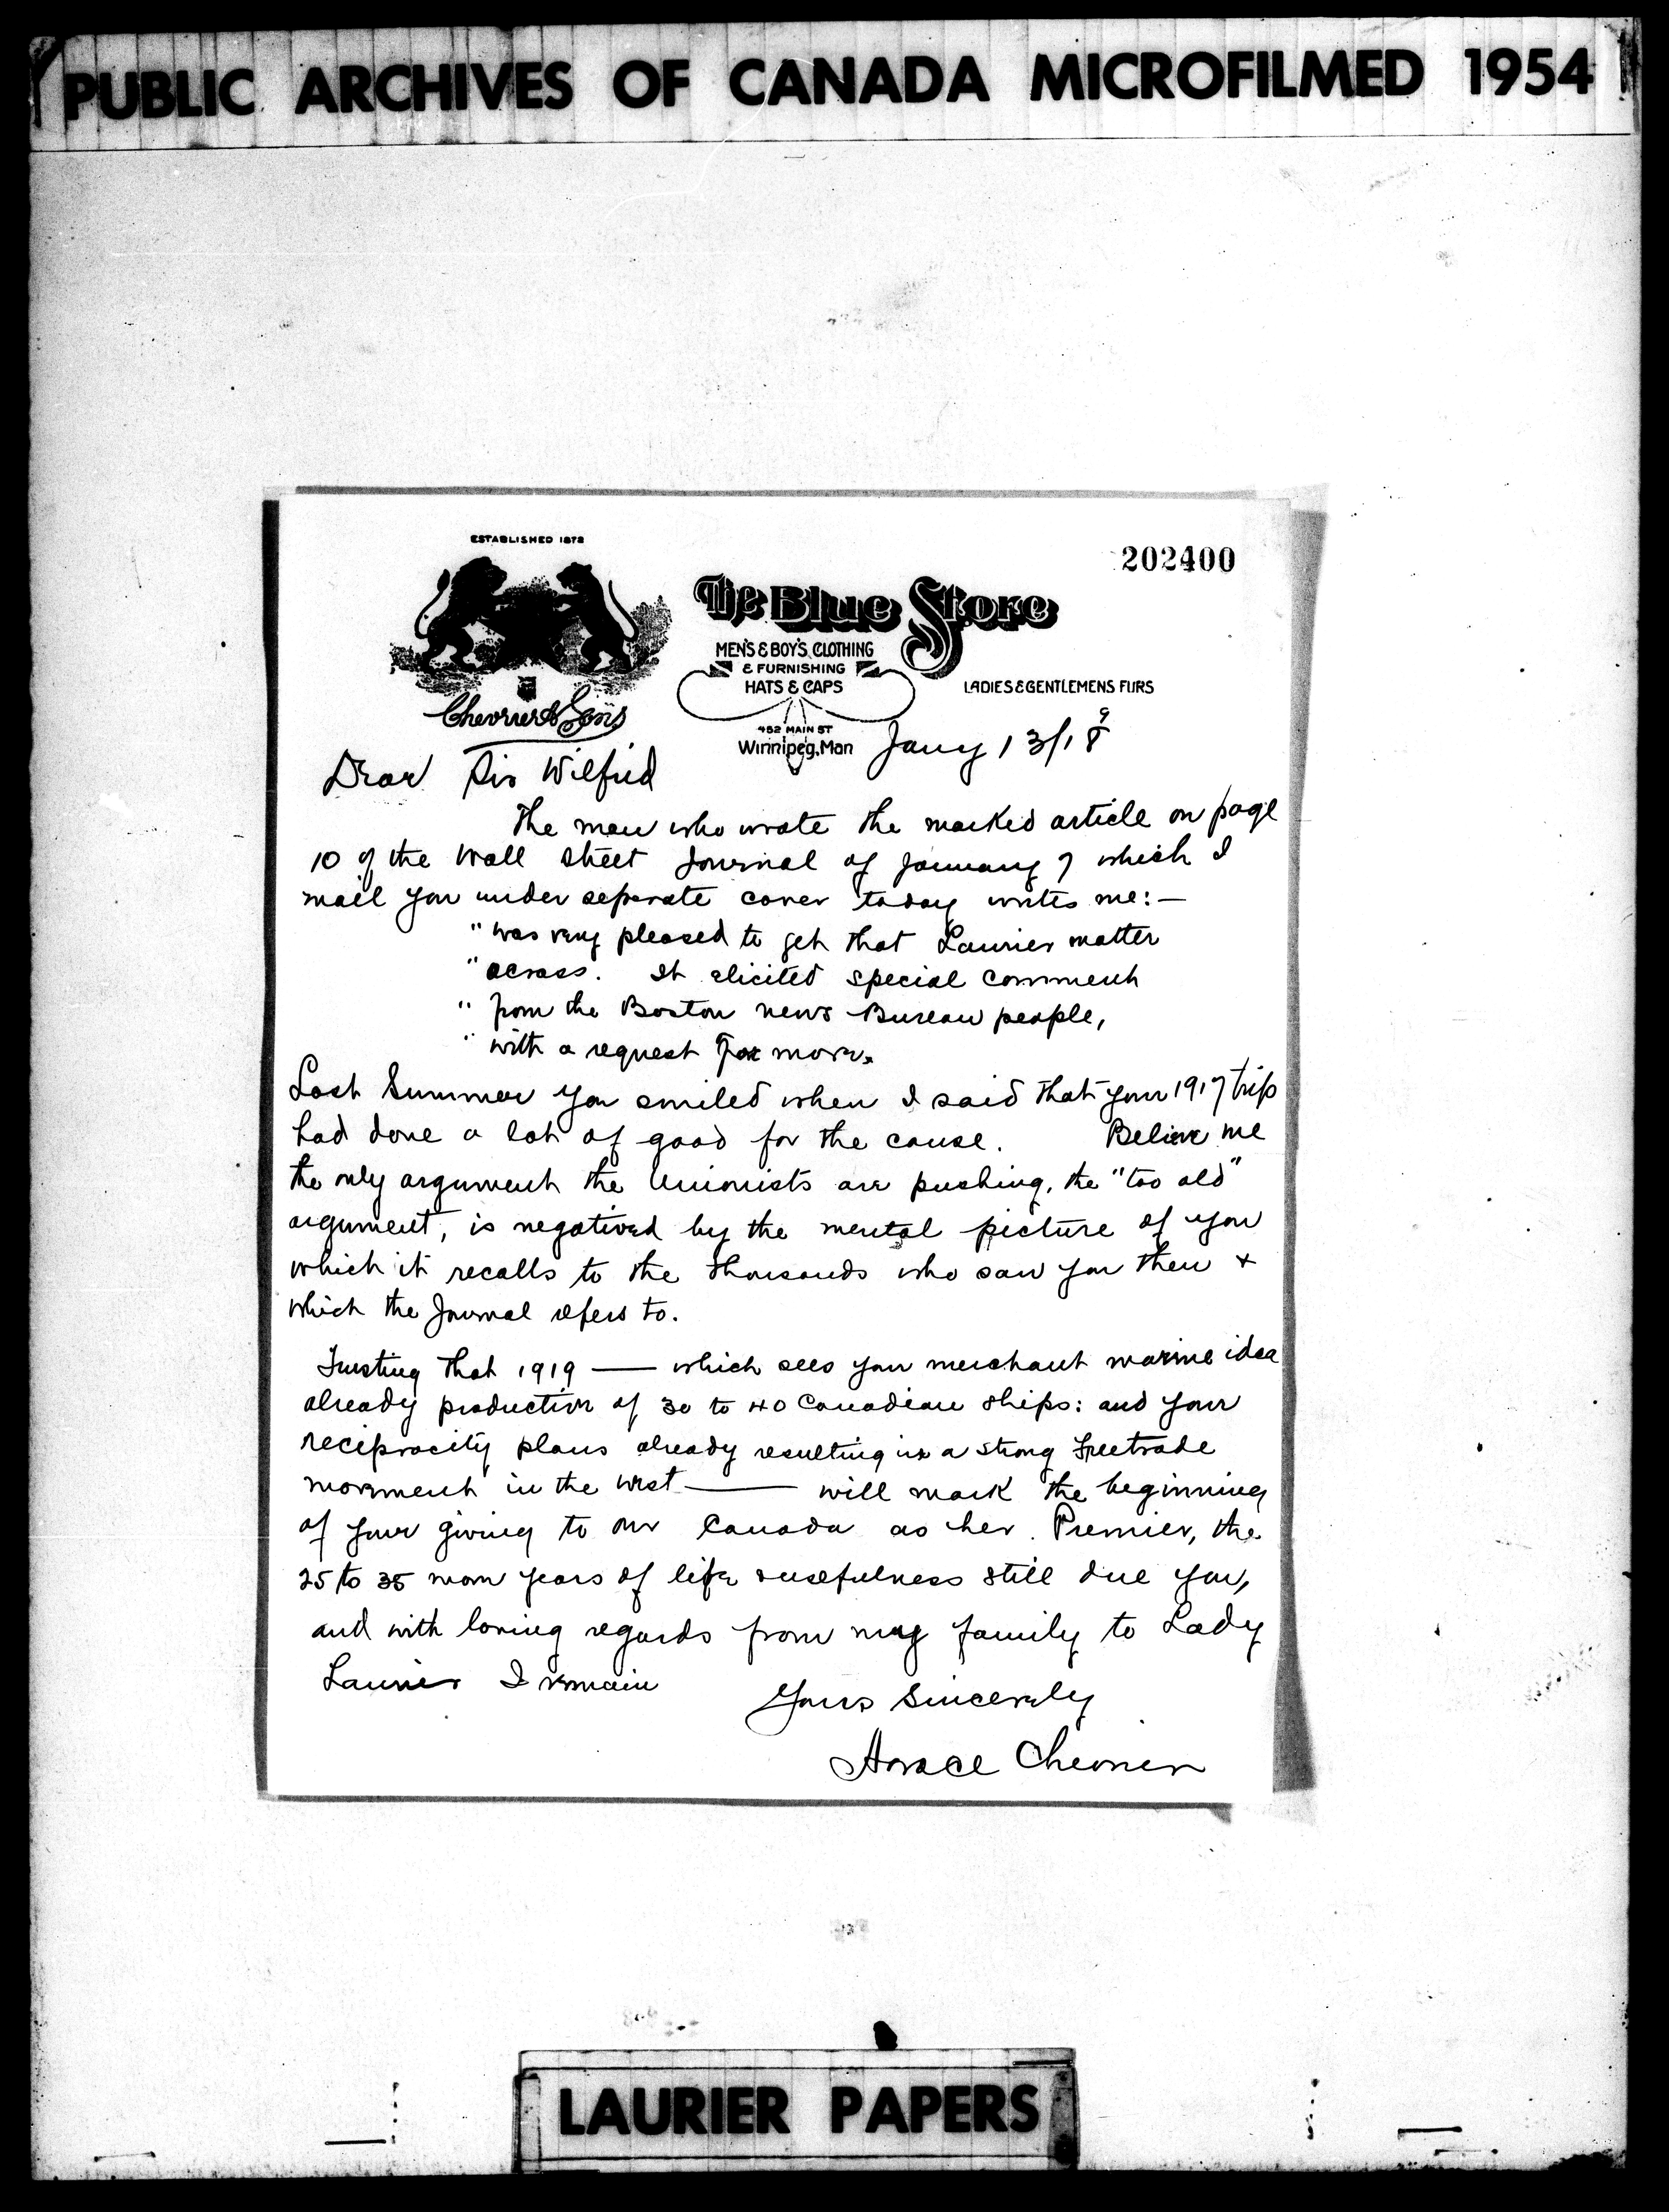 PUBLIC ARCHIVES OF CANADA MICROFILMED 1954
202400
ESTABLISHED 1872
The Blue Store
MEN'S & BOY'S CLOTHING
& FURNISHING
HATS & CAPS
LADIES & GENTLEMENS FURS
Chevrier & Sons
452 MAIN ST
Winnipeg, Man
9
Jany 13/18
Dear Sir Wilfrid
The man who wrote the marked article on page
10 of the Wall Street Journal of January 7 which I
mail you under separate cover today writes me:—
"was very pleased to get that Laurier matter
"across. It elicited special comment
"from the Boston News Bureau people,
"with a request for more.
Last Summer you smiled when I said that your 1917 trip
had done a lot of good for the cause. Believe me
the only argument the Unionists are pushing, the "too old"
argument, is negatived by the mental picture of you
which it recalls to the thousands who saw you then +
which the Journal refers to.
Trusting that 1919 — which sees your merchant marine idea
already productive of 30 to 40 Canadian ships: and your
reciprocity plans already resulting in a strong Freetrade
movement in the west — will mark the beginning
of your giving to our Canada as her Premier, the
25 to 35 more years of life & usefulness still due you,
and with loving regards from my family to Lady
Laurier I remain
Yours Sincerely
Horace Chevrier
LAURIER PAPERS